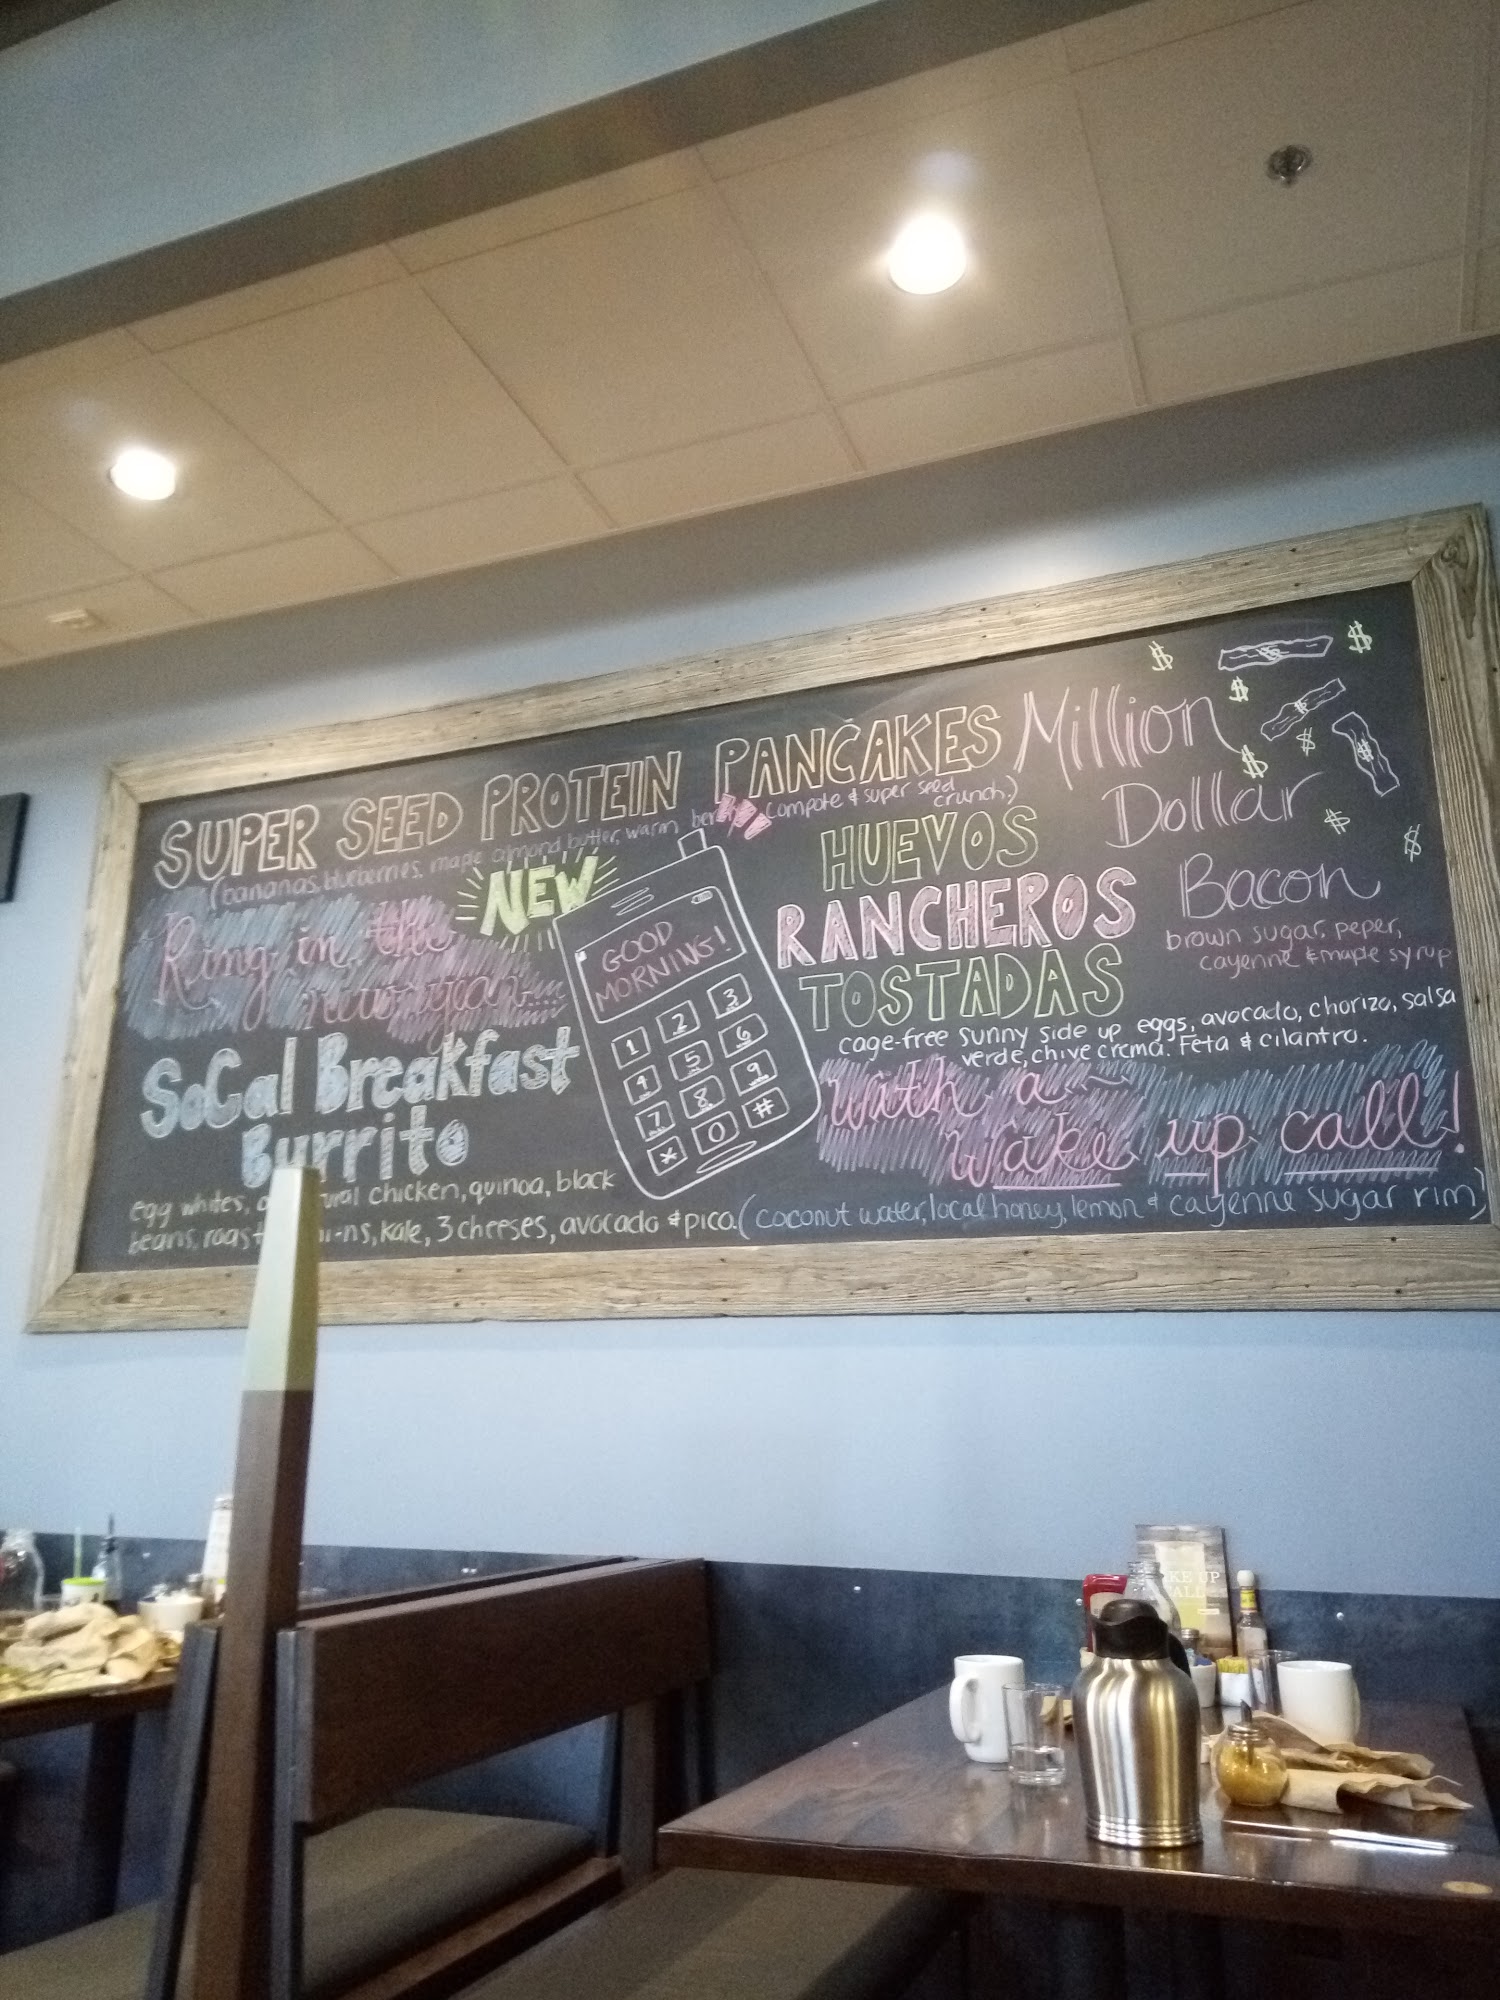 SUPER SEED PROTEIN PANCAKES
(bananas, blurberries, maple almond butter, warm berry compote & super seed
crunch)
NEW
Ring in the
new year....
SoCal Breakfast
Burrito
egg whites, chicken, quinoa, black
beans, kale, 3 cheeses, avocado & pico.
GOOD
MORNING!
1 2 3
4 5 6
7 8 9
* 0 #
HUEVOS
RANCHEROS
TOSTADAS
cage-free sunny side up eggs, avocado, chorizo, salsa
verde, chive crema. Feta & cilantro.
Million
Dollar
Bacon
brown sugar, peper,
cayenne & maple syrup
$ $ $ $ $ $ $ $
with a
wake up call!
(coconut water, local honey, lemon & cayenne sugar rim)
KE UP
ALL